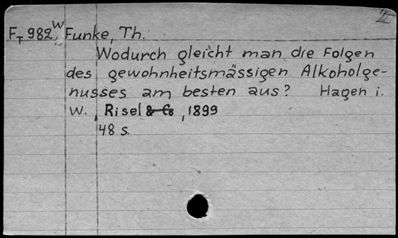 II
F_T 982 W Funke, Th.
Wodurch gleicht man die Folgen
des gewohnheitsmässigen Alkoholge-
nusses am besten aus? Hagen i.
W., Risel & Co, 1899
48 s.